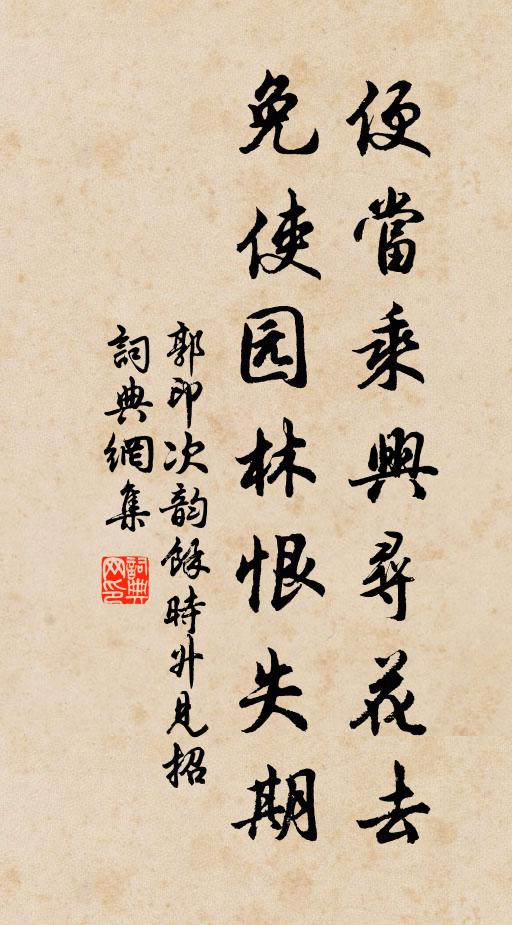 便當乘興尋花去
免使园林恨失期
郭印次韵餘時升見招
詞典網集
詞典網印